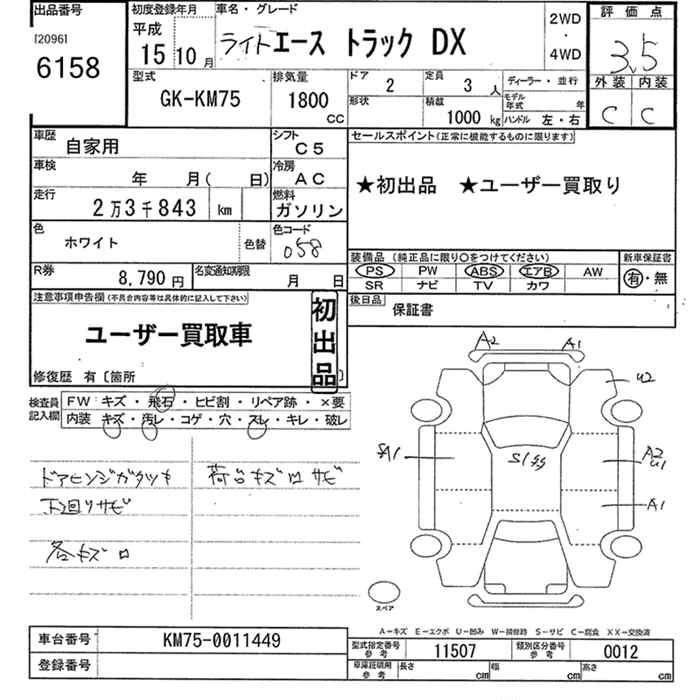 出品番号
[2096]
6158
初度登録年月
平成
15 10 月
車名・グレード
ライトエース トラック DX
2WD
・
4WD
評価点
3.5
外装 内装
C C
型式
GK-KM75
排気量
1800
CC
ドア
2
定員
3 人
形状
積載
1000 kg
ディーラー・並行
モデル年式 年
ハンドル 左・右
車歴
自家用
シフト
C5
車検
年 月( 日)
冷房
AC
走行
2万3千843 km
燃料
ガソリン
色
ホワイト
色替
色コード
058
R券
8,790 円
名変通知期限
月 日
セールスポイント(正常に機能するものに限ります)
★初出品 ★ユーザー買取り
装備品 (純正品に限り○をつけてください)
新車保証書
PS PW ABS エアB AW
SR ナビ TV カワ
有・無
後日品
保証書
注意事項申告欄(不具合内容等は具体的に記入して下さい)
ユーザー買取車
初出品
修復歴 有〔箇所 〕
検査員記入欄
FW キズ・飛石・ヒビ割・リペア跡・×要
内装 キズ・汚レ・コゲ・穴・スレ・キレ・破レ
ドアヒンジガタツキ
下廻りサビ
各キズロ
荷台キズロサビ
A2 A1
U2
SA1
S155
A2
U1
A1
スペア
A-キズ E-エクボ U-凹み W-補修跡 S-サビ C-腐食 XX-交換済
車台番号
KM75-0011449
登録番号
型式指定番号 参考
11507
類別区分番号 参考
0012
車庫証明用 参考
長さ cm
幅 cm
高さ cm